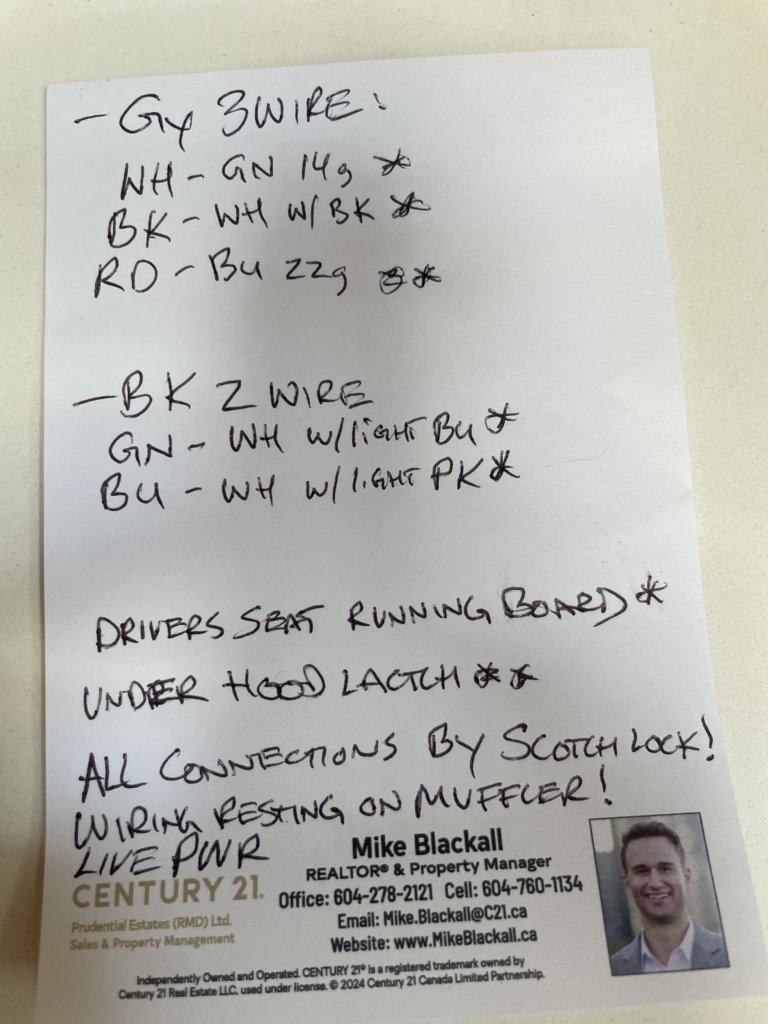 - Gy 3 WIRE:
WH - GN 14g *
BK - WH W/ BK *
RD - Bu 22g **
- BK 2 WIRE
GN - WH W/ligHT Bu *
Bu - WH W/ligHT PK *
DRIVERS SEAT RUNNING BOARD *
UNDER HOOD LACTCH **
ALL CONNECTIONS By SCOTCH LOCK!
WIRING RESTING ON MUFFLER!
LIVE PWR
Mike Blackall
REALTOR® & Property Manager
CENTURY 21.
Office: 604-278-2121 Cell: 604-760-1134
Prudential Estates (RMD) Ltd.
Email: Mike.Blackall@C21.ca
Sales & Property Management
Website: www.MikeBlackall.ca
Independently Owned and Operated. CENTURY 21® is a registered trademark owned by
Century 21 Real Estate LLC, used under license. © 2024 Century 21 Canada Limited Partnership.